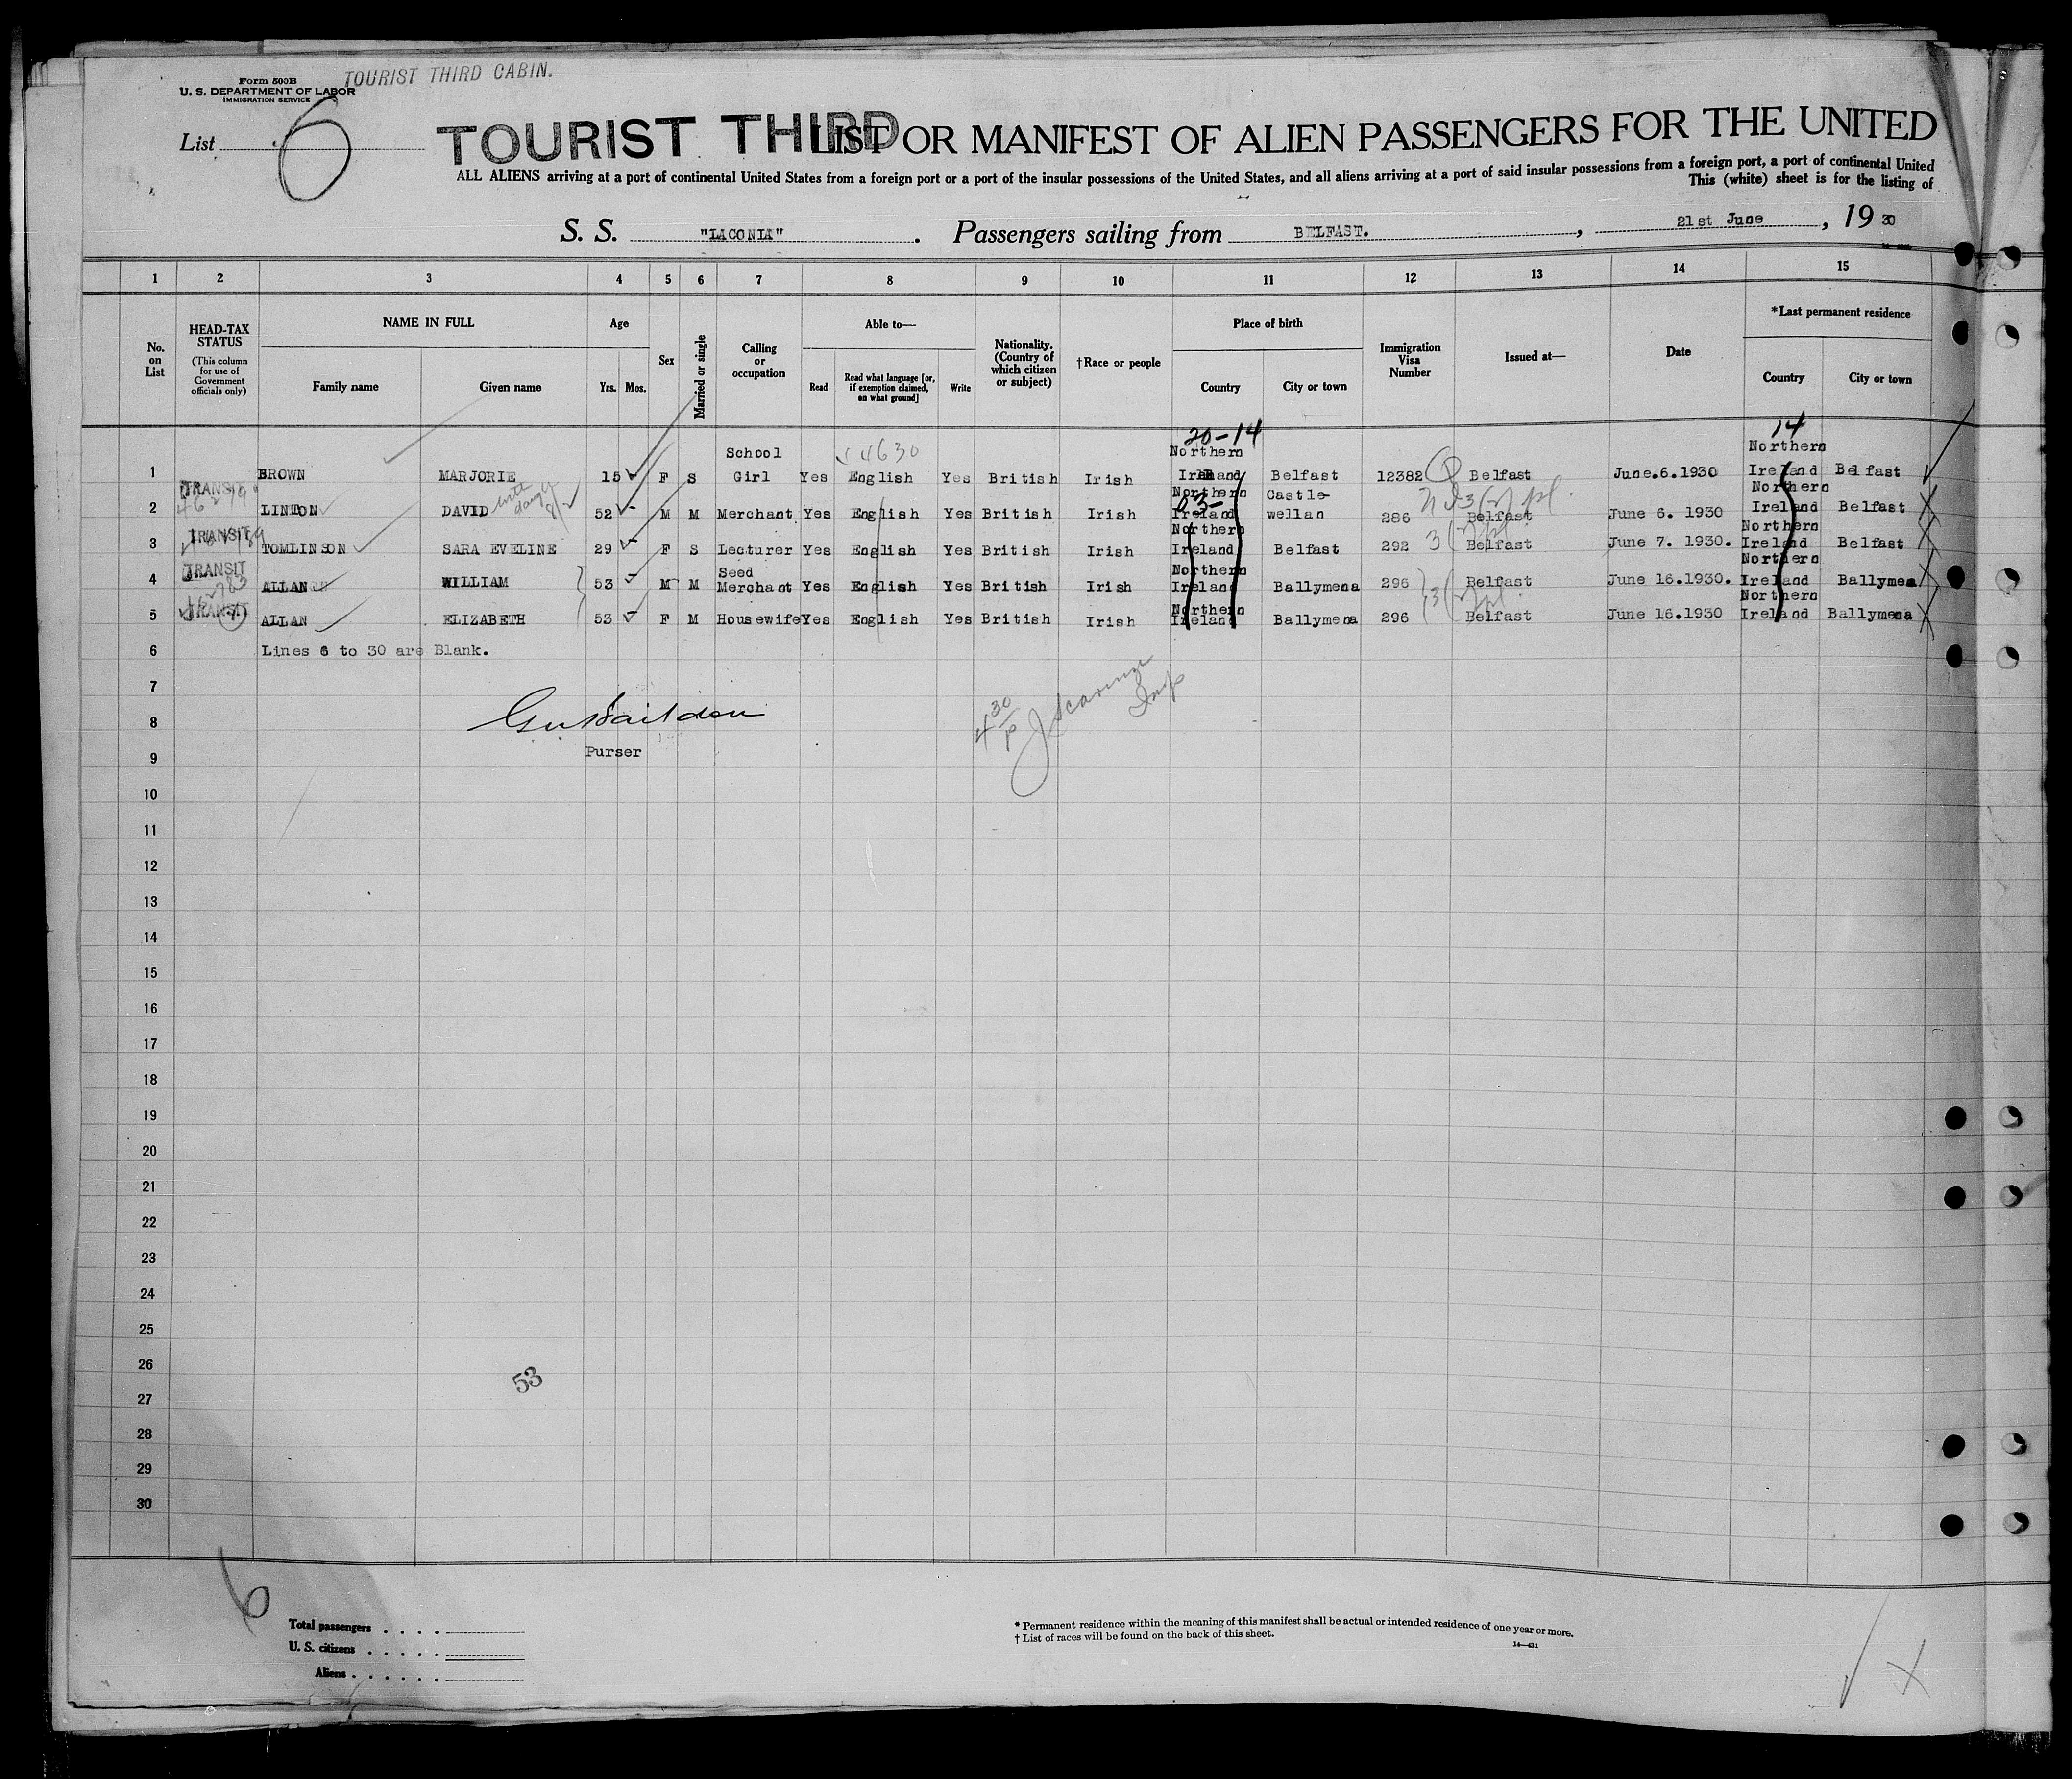 Form 500B
TOURIST THIRD CABIN.
U. S. DEPARTMENT OF LABOR
IMMIGRATION SERVICE
List 6
TOURIST THIRD
LIST OR MANIFEST OF ALIEN PASSENGERS FOR THE UNITED
ALL ALIENS arriving at a port of continental United States from a foreign port or a port of the insular possessions of the United States, and all aliens arriving at a port of said insular possessions from a foreign port, a port of continental United
This (white) sheet is for the listing of
S. S. "LACONIA" . Passengers sailing from BELFAST. , 21st June , 19 30
1 2 3 4 5 6 7 8 9 10 11 12 13 14 15
No. on List
HEAD-TAX STATUS
(This column for use of Government officials only)
NAME IN FULL
Family name Given name
Age
Yrs. Mos.
Sex
Married or single
Calling or occupation
Able to—
Read
Read what language [or, if exemption claimed, on what ground]
Write
Nationality. (Country of which citizen or subject)
†Race or people
Place of birth
Country City or town
Immigration Visa Number
Issued at—
Date
*Last permanent residence
Country City or town
20-14
14
4630
1 BROWN MARJORIE 15 F S School Girl Yes English Yes British Irish Northern Ireland Belfast 12382 Belfast June.6.1930 Northern Ireland Belfast
2 TRANSIT LINTON DAVID with daught 52 M M Merchant Yes English Yes British Irish Northern Ireland Castle-wellan 286 Belfast June 6. 1930 Northern Ireland Belfast
3 TRANSIT TOMLINSON SARA EVELINE 29 F S Lecturer Yes English Yes British Irish Northern Ireland Belfast 292 Belfast June 7. 1930. Northern Ireland Belfast
4 TRANSIT ALLAN WILLIAM 53 M M Seed Merchant Yes English Yes British Irish Northern Ireland Ballymena 296 Belfast June 16.1930. Northern Ireland Ballymena
5 TRANSIT ALLAN ELIZABETH 53 F M Housewife Yes English Yes British Irish Northern Ireland Ballymena 296 Belfast June 16.1930 Northern Ireland Ballymena
6 Lines 6 to 30 are Blank.
7
8
Purser
9
10
11
12
13
14
15
16
17
18
19
20
21
22
23
24
25
26
53
27
28
29
30
6
Total passengers . . . .
U. S. citizens . . . . .
Aliens . . . . . .
* Permanent residence within the meaning of this manifest shall be actual or intended residence of one year or more.
† List of races will be found on the back of this sheet.
14—431